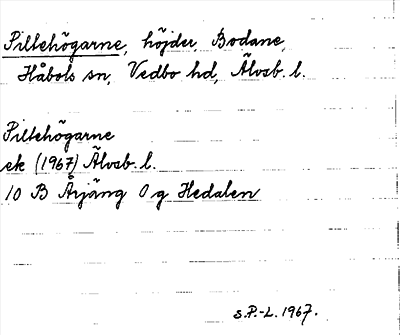 Piltehögarne, höjder, Bodane,
Håbols sn, Vedbo hd, Älvsb. l.
Piltehögarne
ek (1967) Älvsb. l.
10 B Årjäng 0 g Hedalen
S.P.-L. 1967.